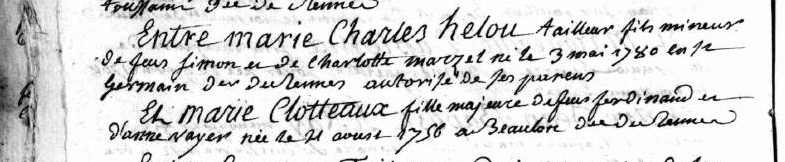 toussaint dce de Rennes
Entre marie Charles helou tailleur fils mineur
de feus simon et de charlotte marzel né le 3 mai 1780 en st
Germain dce de Rennes autorisé de ses parens
Et marie Clotteaux fille majeure de feus ferdinand et
d'anne vayer née le 21 aoust 1756 a Beaulon dce de Rennes